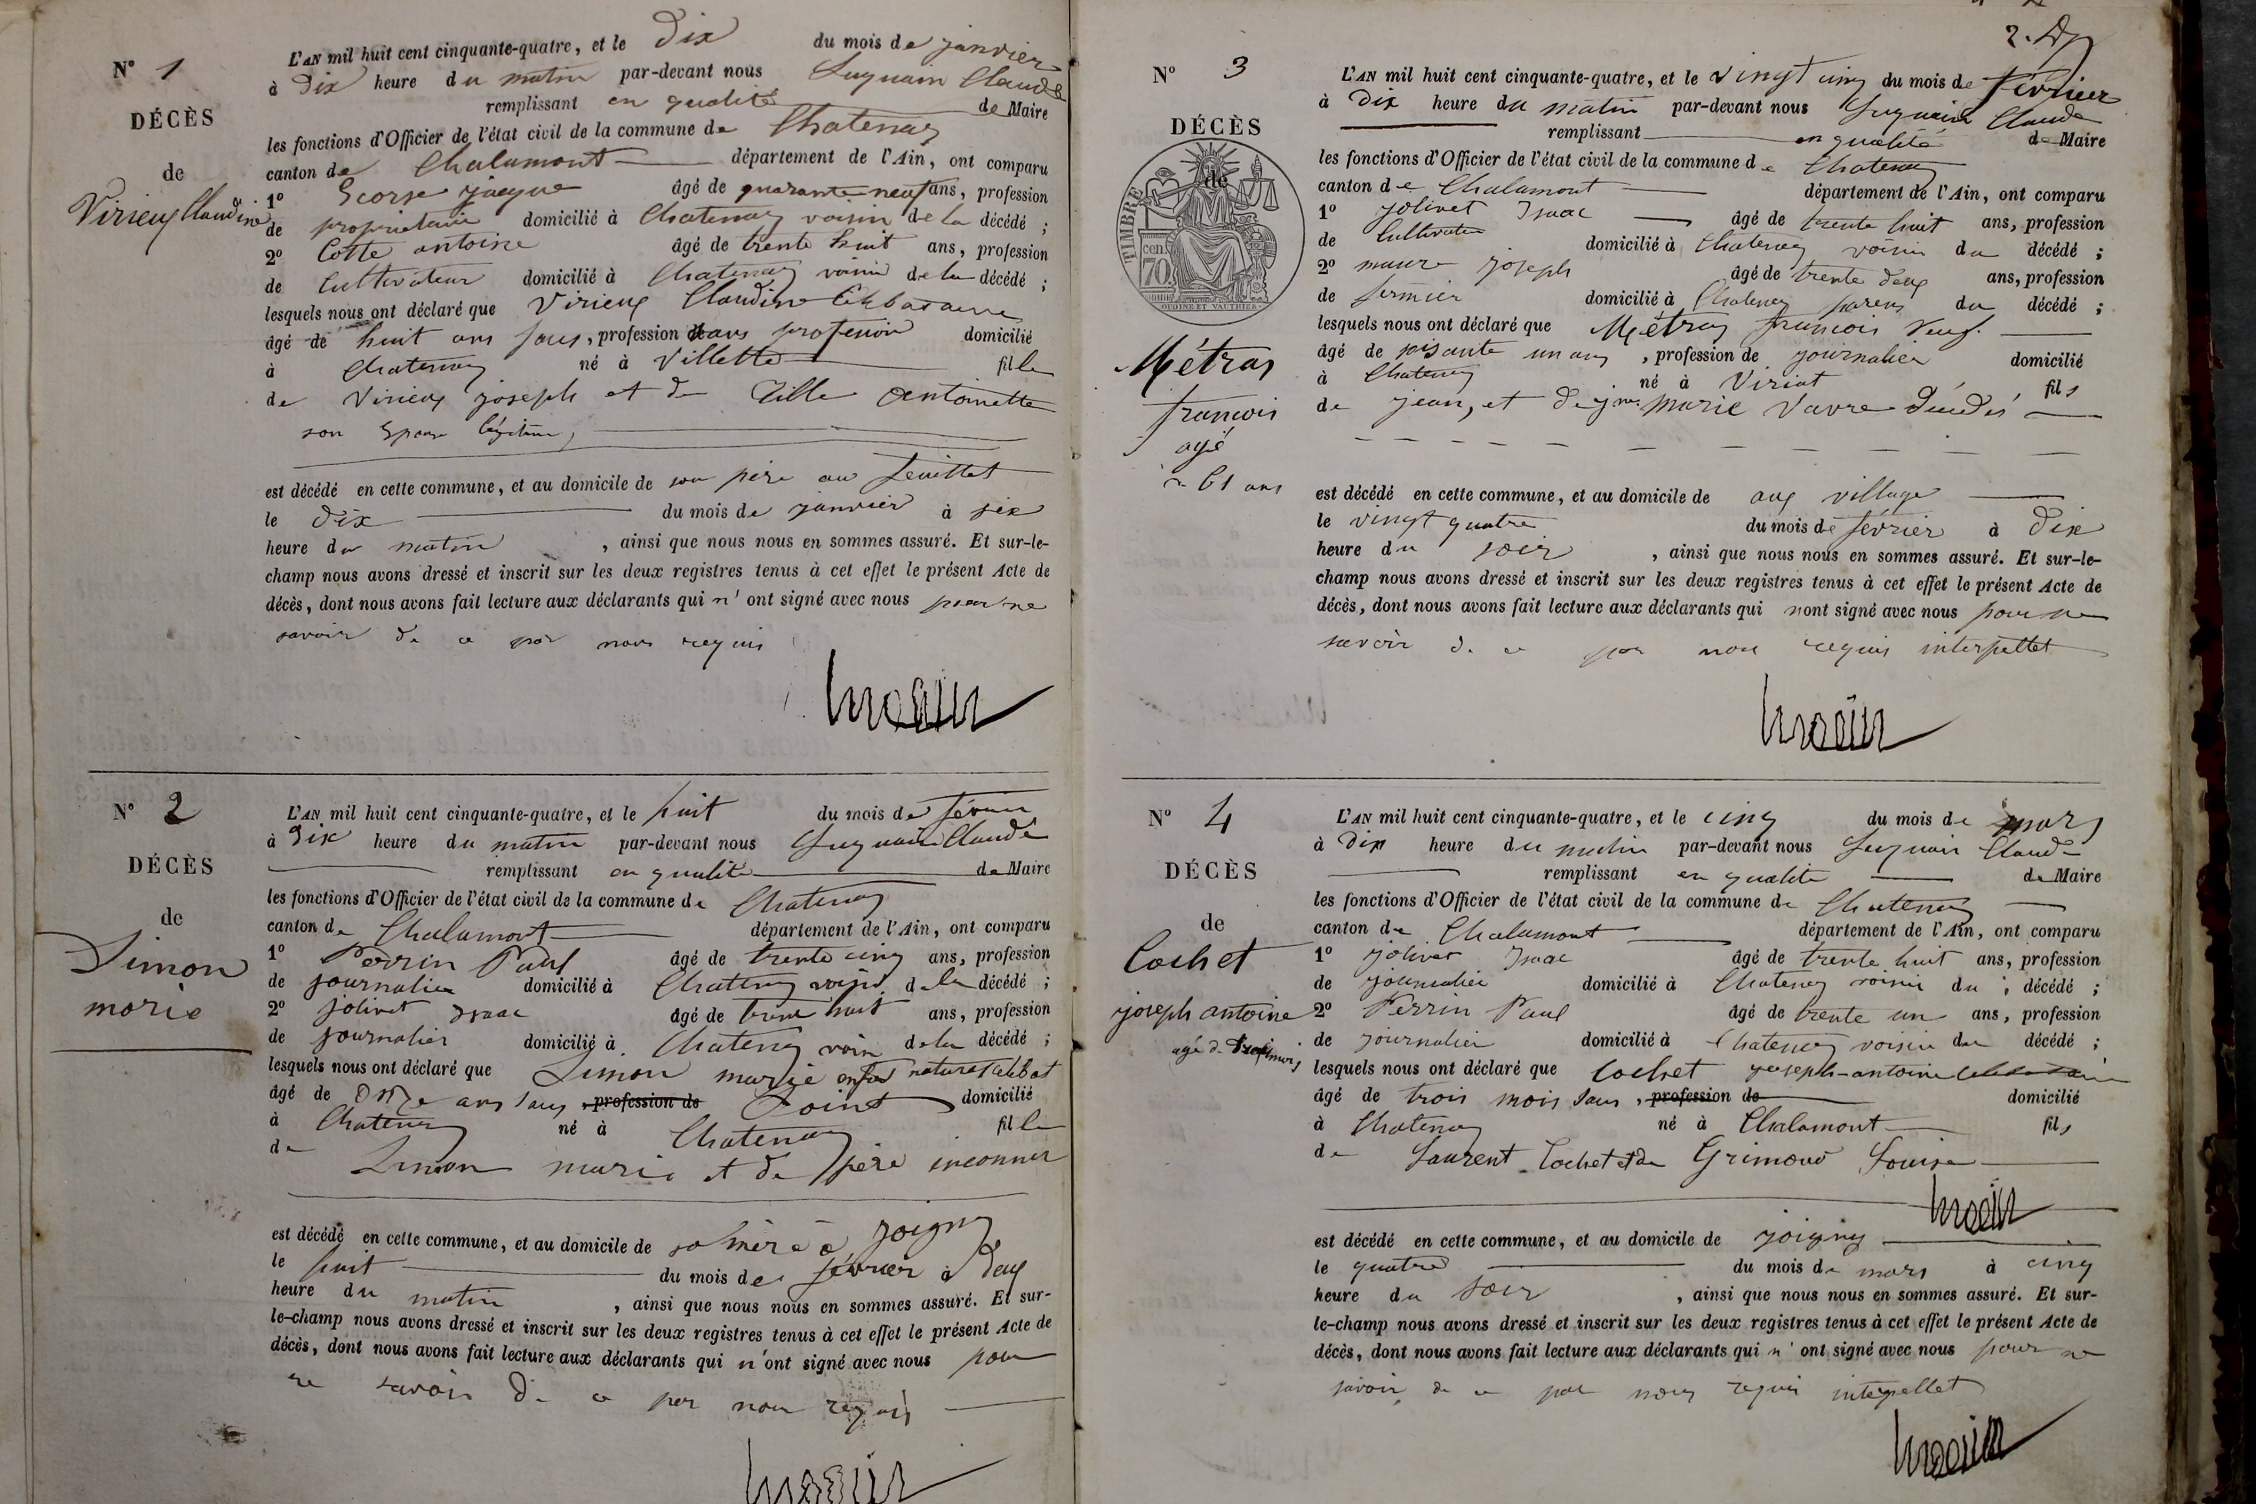 N° 1
DÉCÈS
de
Virieux Claudine
L'AN mil huit cent cinquante-quatre, et le Dix du mois de janvier
à Dix heure du matin par-devant nous Luquain Claude
remplissant en qualité de Maire
les fonctions d'Officier de l'état civil de la commune de Chatenay
canton de Chalamont département de l'Ain, ont comparu
1° jacque âgé de quarante neuf ans, profession
de propriétaire domicilié à Chatenay voisin de la décédé ;
2° Cotte antoine âgé de trente huit ans, profession
de Cultivateur domicilié à Chatenay voisin de la décédé ;
lesquels nous ont déclaré que Virieux Claudine Célibataire
âgé de huit ans sans, profession domicilié
à Chatenay né à Villette fille
de Virieux joseph et de antoinette
son légitime,
est décédé en cette commune, et au domicile de son père au
le Dix du mois de janvier à six
heure du matin , ainsi que nous nous en sommes assuré. Et sur-le-
champ nous avons dressé et inscrit sur les deux registres tenus à cet effet le présent Acte de
décès, dont nous avons fait lecture aux déclarants qui n'ont signé avec nous pour ne
savoir de ce par nous requis
N° 2
DÉCÈS
de
Simon
marie
L'AN mil huit cent cinquante-quatre, et le huit du mois de février
à Dix heure du matin par-devant nous Luquain Claude
remplissant en qualité de Maire
les fonctions d'Officier de l'état civil de la commune de Chatenay
canton de Chalamont département de l'Ain, ont comparu
1° Perrin Paul âgé de trente cinq ans, profession
de journalier domicilié à Chatenay voisin de la décédé ;
2° jolivet Isaac âgé de trente huit ans, profession
de journalier domicilié à Chatenay voisin de la décédé ;
lesquels nous ont déclaré que Simon marie
âgé de onze ans sans, profession de domicilié
à Chatenay né à Chatenay fille
de Simon marie et de père inconnu
est décédé en cette commune, et au domicile de sa mère à joigny
le huit du mois de février à deux
heure du matin , ainsi que nous nous en sommes assuré. Et sur-
le-champ nous avons dressé et inscrit sur les deux registres tenus à cet effet le présent Acte de
décès, dont nous avons fait lecture aux déclarants qui n'ont signé avec nous pour
ne savoir de ce par nous requis
N° 3
DÉCÈS
de
TIMBRE
cen
70
Métras
françois
agé
61 ans
L'AN mil huit cent cinquante-quatre, et le vingt cinq du mois de février
à Dix heure du matin par-devant nous Luquain Claude
remplissant en qualité de Maire
les fonctions d'Officier de l'état civil de la commune de Chatenay
canton de Chalamont département de l'Ain, ont comparu
1° jolivet Isaac âgé de trente huit ans, profession
de Cultivateur domicilié à Chatenay voisin du décédé ;
2° joseph âgé de trente deux ans, profession
de fermier domicilié à Chatenay du décédé ;
lesquels nous ont déclaré que Métras françois veuf
âgé de soisante un ans, profession de journalier domicilié
à Chatenay né à Viriat fils
de jean, et de marie décédés
est décédé en cette commune, et au domicile de aux village
le vingt quatre du mois de février à Dix
heure du soir , ainsi que nous nous en sommes assuré. Et sur-le-
champ nous avons dressé et inscrit sur les deux registres tenus à cet effet le présent Acte de
décès, dont nous avons fait lecture aux déclarants qui n'ont signé avec nous pour ne
savoir de ce par nous requis interpellet
N° 4
DÉCÈS
de
Cochet
joseph antoine
agé de trois mois
L'AN mil huit cent cinquante-quatre, et le cinq du mois de mars
à Dix heure du matin par-devant nous Luquain Claude
remplissant en qualité de Maire
les fonctions d'Officier de l'état civil de la commune de Chatenay
canton de Chalamont département de l'Ain, ont comparu
1° jolivet Isaac âgé de trente huit ans, profession
de journalier domicilié à Chatenay voisin du décédé ;
2° Perrin Paul âgé de trente un ans, profession
de journalier domicilié à Chatenay voisin du décédé ;
lesquels nous ont déclaré que Cochet joseph-antoine Celibataire
âgé de trois mois sans, profession de domicilié
à Chatenay né à Chalamont fils
de Laurent Cochet et de Grimoud Louise
est décédé en cette commune, et au domicile de joigny
le quatre du mois de mars à cinq
heure du soir , ainsi que nous nous en sommes assuré. Et sur-
le-champ nous avons dressé et inscrit sur les deux registres tenus à cet effet le présent Acte de
décès, dont nous avons fait lecture aux déclarants qui n'ont signé avec nous pour ne
savoir de ce par nous requis interpellet